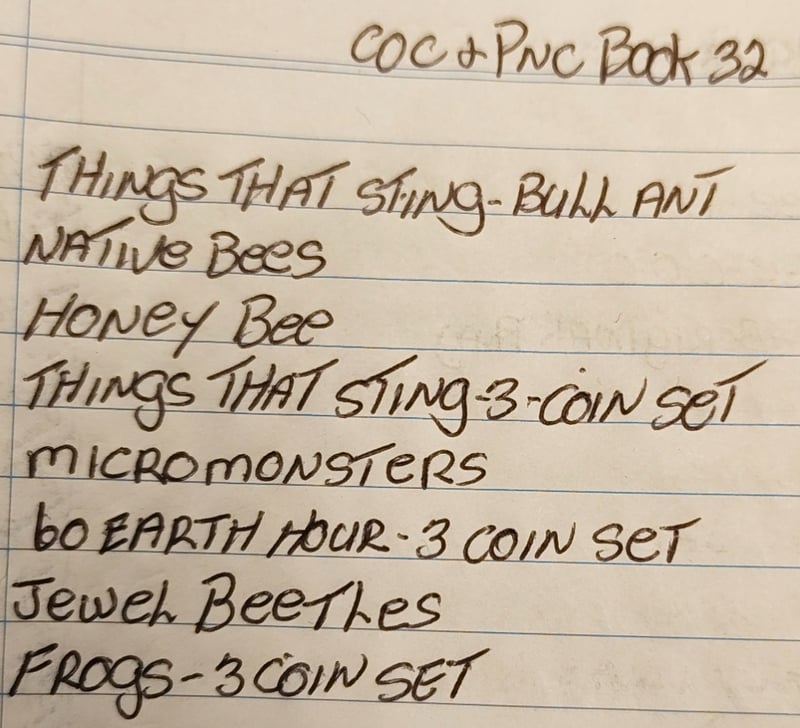 COC & PNC Book 32
THINGS THAT STING-BULL ANT
NATIVE BEES
HONEY BEE
THINGS THAT STING-3-COIN SET
MICROMONSTERS
60 EARTH HOUR-3 COIN SET
JEWEL BEETLES
FROGS-3 COIN SET